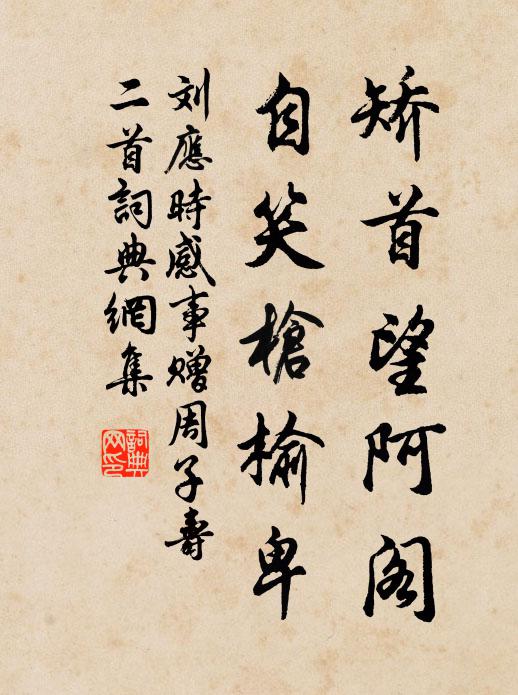 矫首望阿阁
自笑槍榆卑
刘應時感事赠周子壽
二首詞典網集
詞典網印